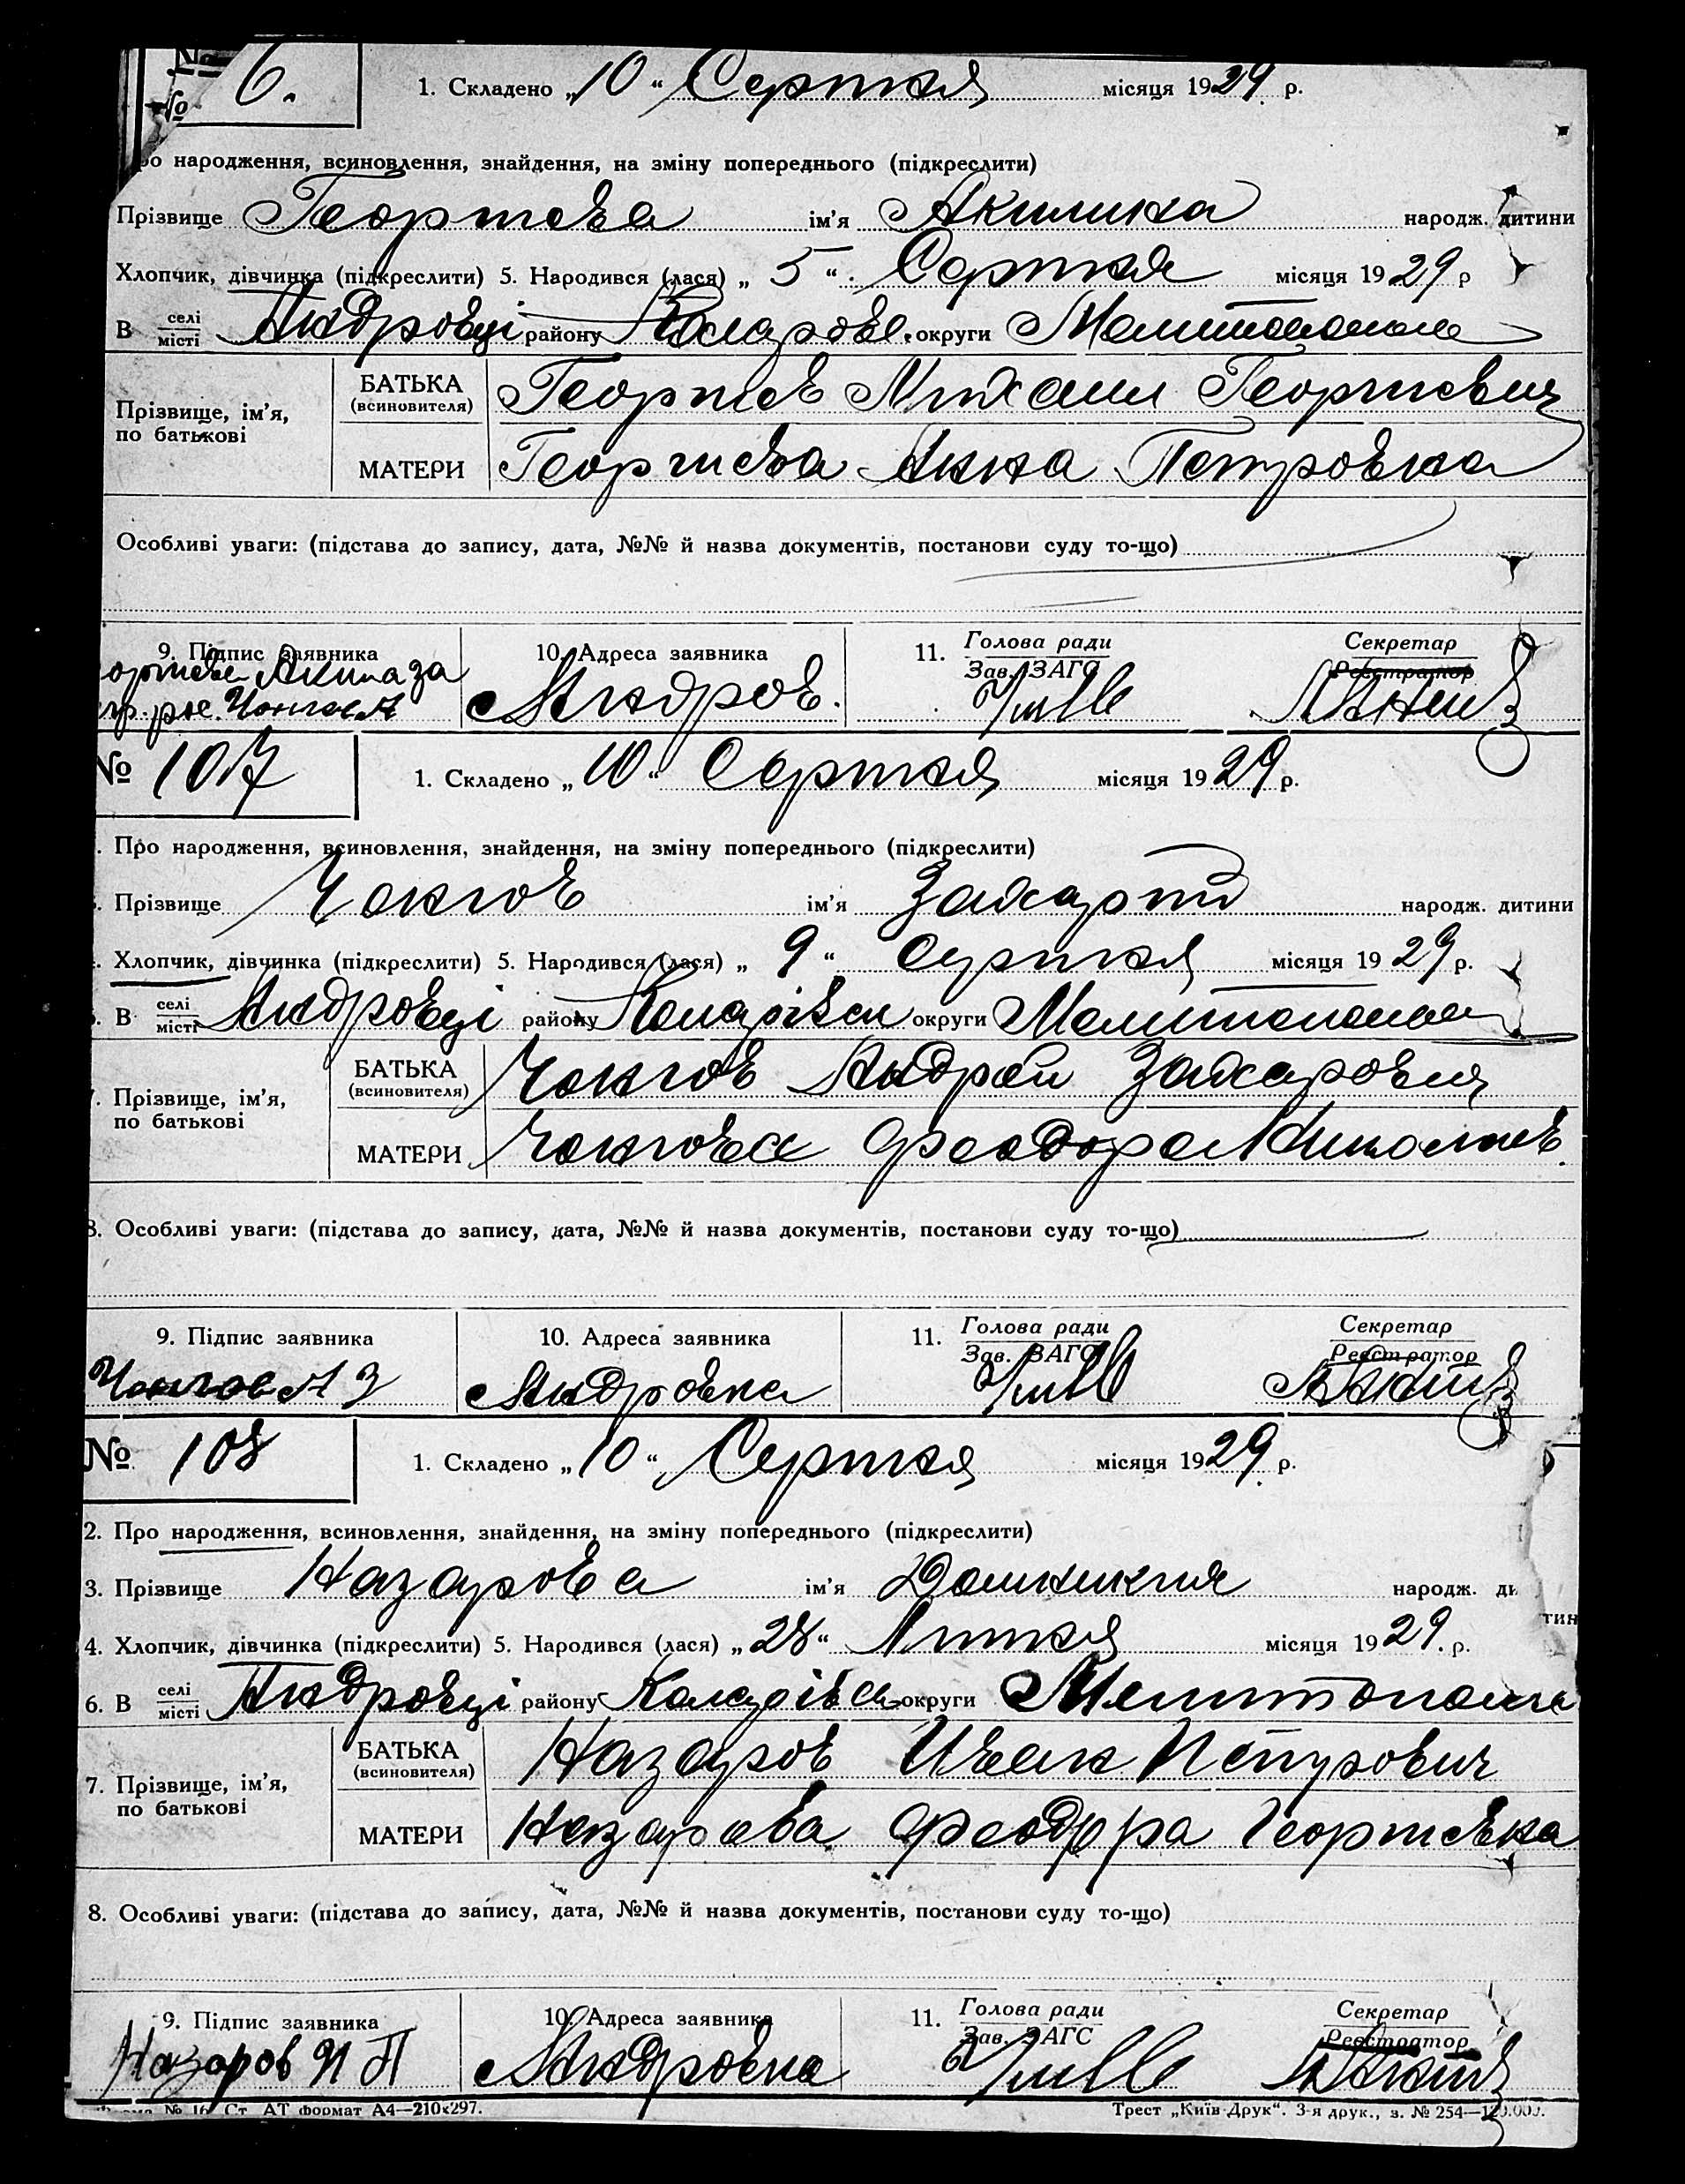 № 6. 1. Складено „10“ Серпня місяця 1929 р.
ро народження, всиновлення, знайдення, на зміну попереднього (підкреслити)
Прізвище Георгиева ім'я Акилина народж. дитини
Хлопчик, дівчинка (підкреслити) 5. Народився (лася) „5“ Серпня місяця 1929 р
В селі місті Андровці району округи
Прізвище, ім'я, по батькові
БАТЬКА (всиновителя) Георгиев Михаил Георгиевич
МАТЕРИ Георгиева Анна Петровна
Особливі уваги: (підстава до запису, дата, №№ й назва документів, постанови суду то-що)
9. Підпис заявника 10. Адреса заявника 11. Голова ради Секретар
Зав. ЗАГС Реєстратор
Андров.
№ 107 1. Складено „10“ Серпня місяця 1929 р.
. Про народження, всиновлення, знайдення, на зміну попереднього (підкреслити)
. Прізвище Чонгов ім'я Захарій народж. дитини
. Хлопчик, дівчинка (підкреслити) 5. Народився (лася) „9“ Серпня місяця 1929 р.
. В селі місті Андровці району округи
7. Прізвище, ім'я, по батькові
БАТЬКА (всиновителя) Чонгов Андрей Захарович
МАТЕРИ Чонгова Феодора Николаев.
8. Особливі уваги: (підстава до запису, дата, №№ й назва документів, постанови суду то-що)
9. Підпис заявника 10. Адреса заявника 11. Голова ради Секретар
Зав. ЗАГС Реєстратор
Чонгов А З Андровка
№ 108 1. Складено „10“ Серпня місяця 1929 р.
2. Про народження, всиновлення, знайдення, на зміну попереднього (підкреслити)
3. Прізвище Назарова ім'я народж. ди тин
4. Хлопчик, дівчинка (підкреслити) 5. Народився (лася) „28“ Липня місяця 1929. р.
6. В селі місті Андровці району округи
7. Прізвище, ім'я, по батькові
БАТЬКА (всиновителя) Назаров Иван Петрович
МАТЕРИ Назарова Феодора Георгиевна
8. Особливі уваги: (підстава до запису, дата, №№ й назва документів, постанови суду то-що)
9. Підпис заявника 10. Адреса заявника 11. Голова ради Секретар
Зав. ЗАГС Реєстратор
Назаров И П Андровка
№ 16 Ст. АТ формат А4—210х297. Трест „Київ-Друк“. 3-я друк., з. № 254—120.000.